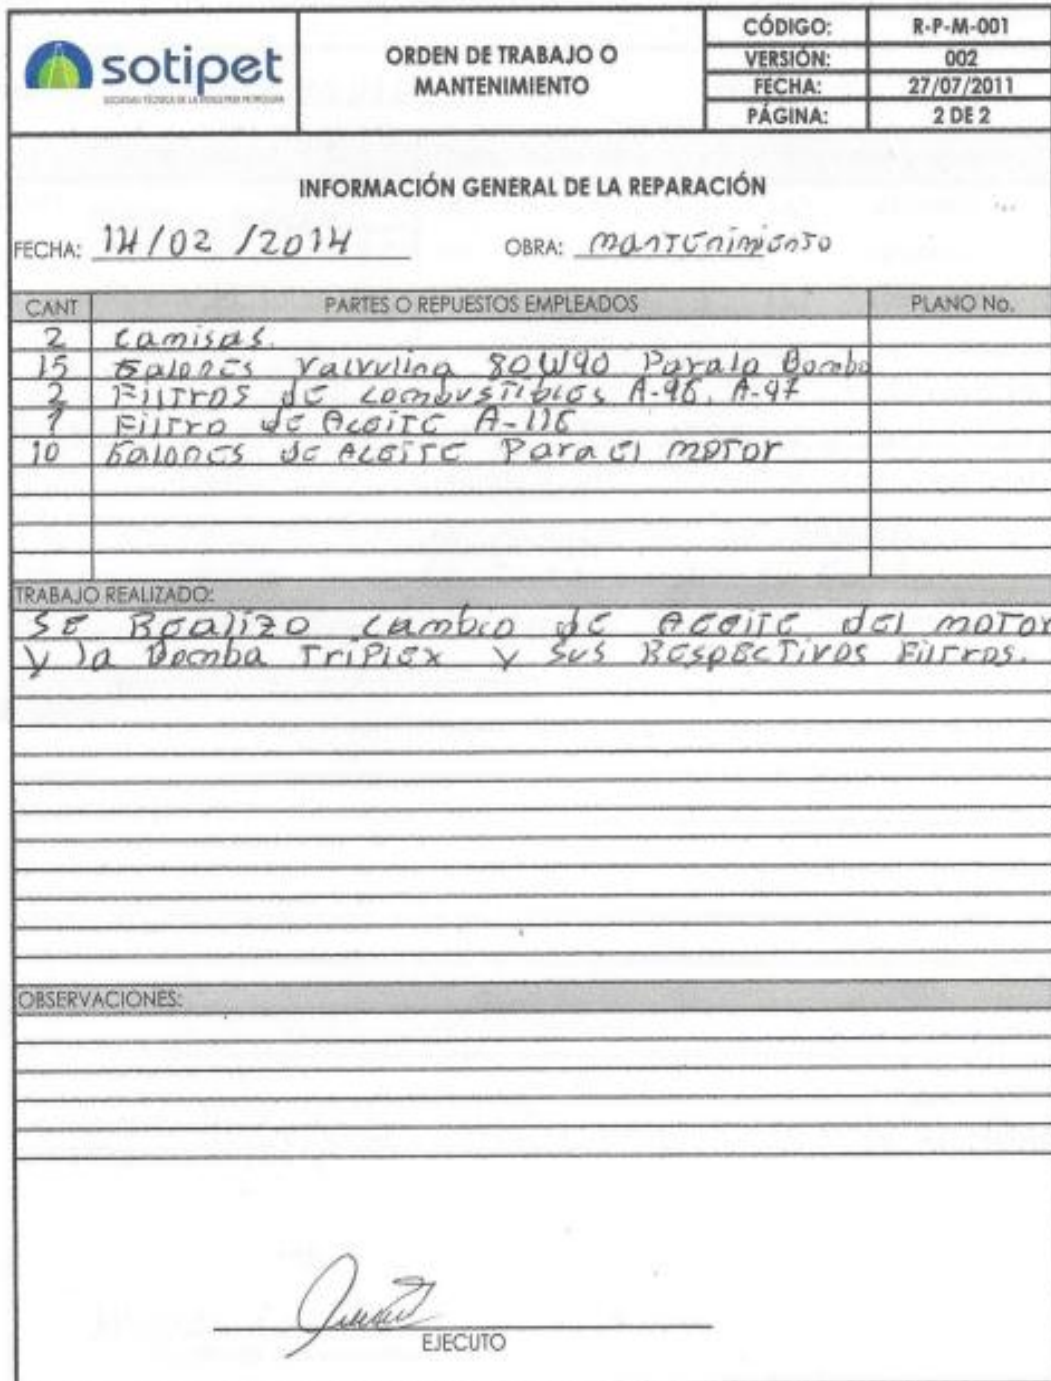 sotipet
SOCIEDAD TÉCNICA DE LA INDUSTRIA PETROLERA
ORDEN DE TRABAJO O
MANTENIMIENTO
CÓDIGO: R-P-M-001
VERSIÓN: 002
FECHA: 27/07/2011
PÁGINA: 2 DE 2
INFORMACIÓN GENERAL DE LA REPARACIÓN
FECHA: 14/02/2014 OBRA: mantenimiento
CANT PARTES O REPUESTOS EMPLEADOS PLANO No.
2 camisas.
15 Galones Valvulina 80W90 Para la Bomba
2 Filtros de combustibles A-96, A-97
1 Filtro de Aceite A-116
10 Galones de Aceite Para el motor
TRABAJO REALIZADO:
SE Realizo cambio de Aceite del motor
y la Bomba Triplex y sus Respectivos Filtros.
OBSERVACIONES:
EJECUTO